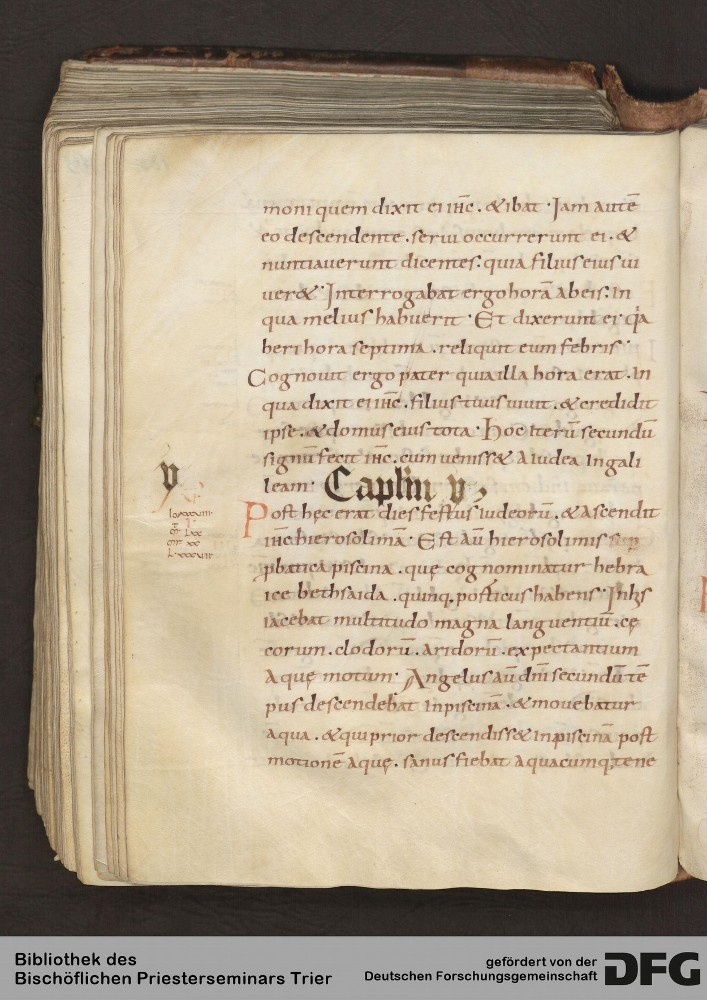 moni quem dixit ei ihc . & ibat · Iam autē
eo descendente . serui occurrerunt ei . &
nuntiauerunt dicentes . quia filius eius ui
uer& · Interrogabat ergo horā ab eis . in
qua melius habuerit · Et dixerunt ei · qa
heri hora septima . reliquit eum febris ·
Cognouit ergo pater quia illa hora erat . in
qua dixit ei ihc . filius tuus uiuit . & credidit
ipse . & domus eius tota · Hoc iterū secundū
signū fecit ihc . cumueniss& a iudea in gali
leam · Caplm v
v
Post hęc erat dies festus iudeorū . & ascendit
ihc hierosolimā · Est aū hierosolimis sup
pbatica piscina . quę cognominatur hebra
ice bethsaida . quinq. porticus habens · In his
iacebat multitudo magna languentiū . cę
corum . clodorū . aridorū . expectantium
aquę motum · Angelus aū dni secundū tē
pus descendebat in piscinā . & mouebatur
aqua . & qui prior descendiss& in piscinā post
motionē aquę . sanus fiebat a quacumq. tene
Bibliothek des
Bischöflichen Priesterseminars Trier
gefördert von der
Deutschen Forschungsgemeinschaft
DFG